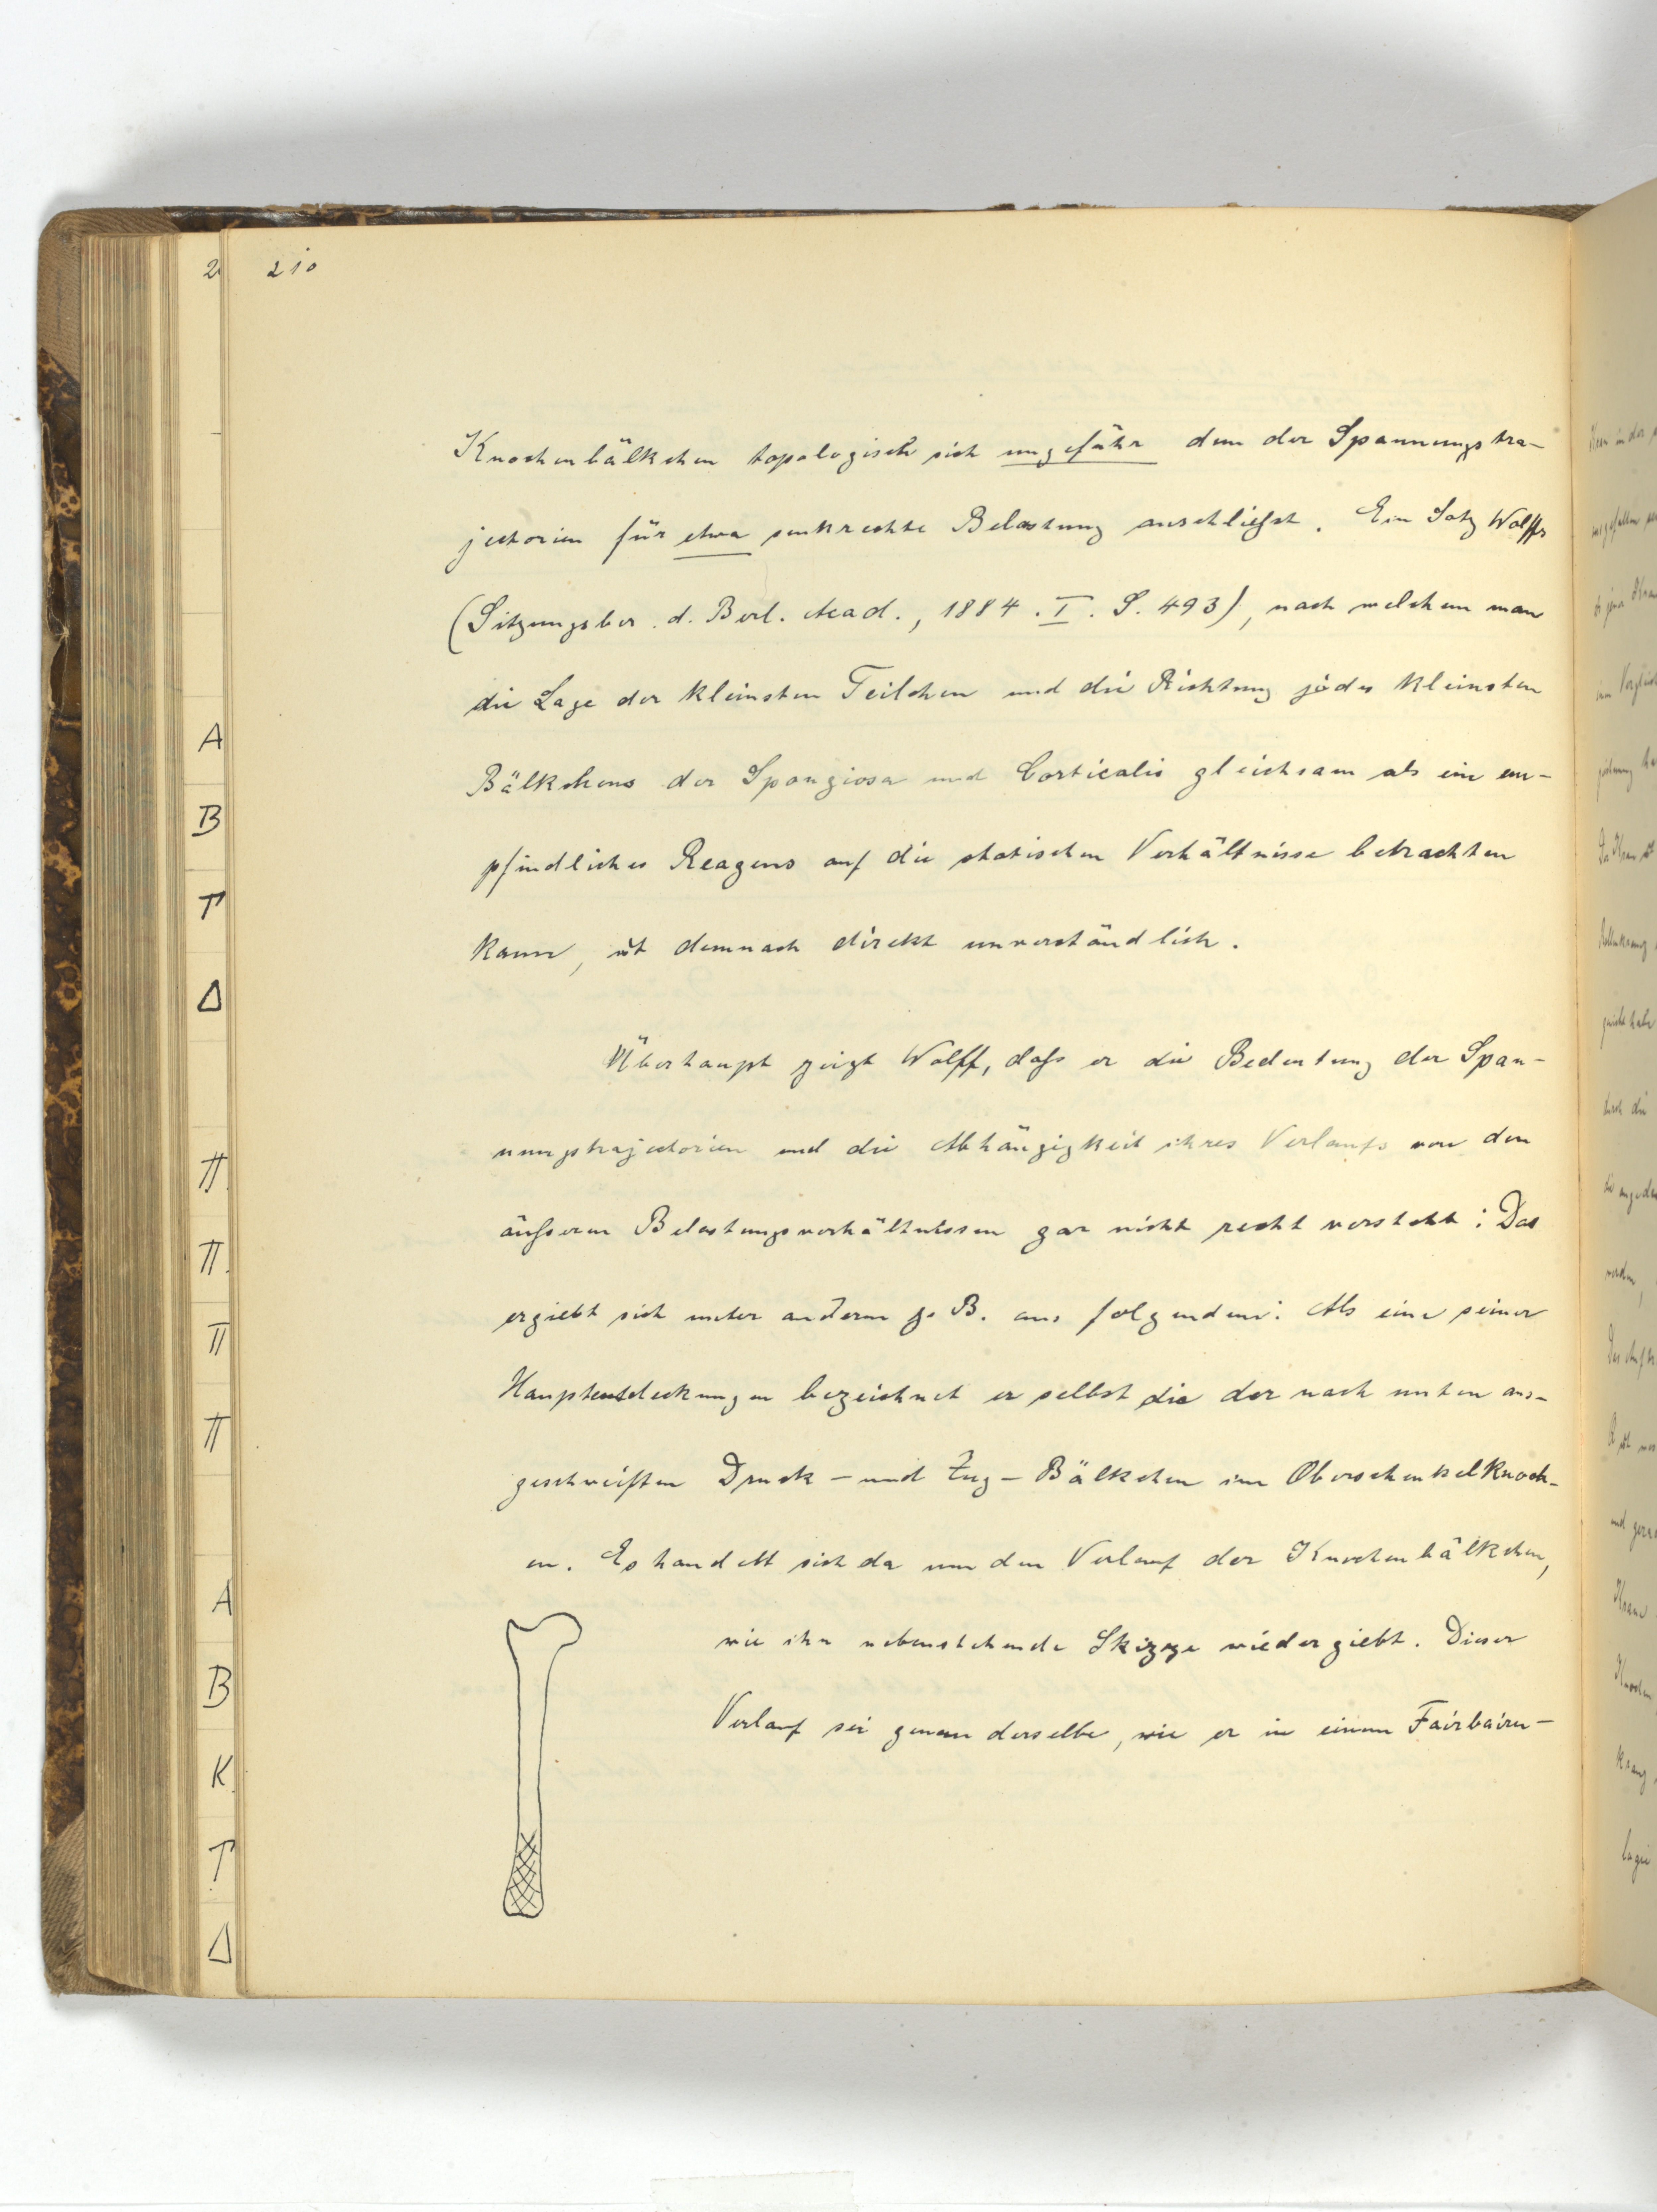 210
Knochenbälkchen topologisch sich ungefähr dem der Spannungstra-
jectorien für etwa senkrechte Belastung anschließt. Ein Satz Wolffs
(Sitzungsber. d. Berl. Acad., 1884. I. S. 493), nach welchem man
die Lage der kleinsten Teilchen und die Richtung jedes kleinsten
Bälkchens der Spongiosa und Corticalis gleichsam als ein em-
pfindliches Reagens auf die statischen Verhältnisse betrachten
kann, ist demnach direkt unverständlich.
Überhaupt zeigt Wolff, daß er die Bedeutung der Span-
nungstrajectorien und die Abhängigkeit ihres Verlaufs von den
äußeren Belastungsverhältnissen gar nicht recht versteht: Das
ergiebt sich unter anderm z. B. aus folgendem: Als eine seiner
Hauptentdeckungen bezeichnet er selbst die der nach unten aus-
geschweiften Druck- und Zug-Bälkchen im Oberschenkelknoch-
en. Es handelt sich da um den Verlauf der Knochenbälkchen,
wie ihn nebenstehende Skizze wiedergiebt. Dieser
Verlauf sei genau derselbe, wie er in einem Fairbairn-
A
B
Γ
Δ
Π
Π
Π
Π
A
B
K
Γ
Δ